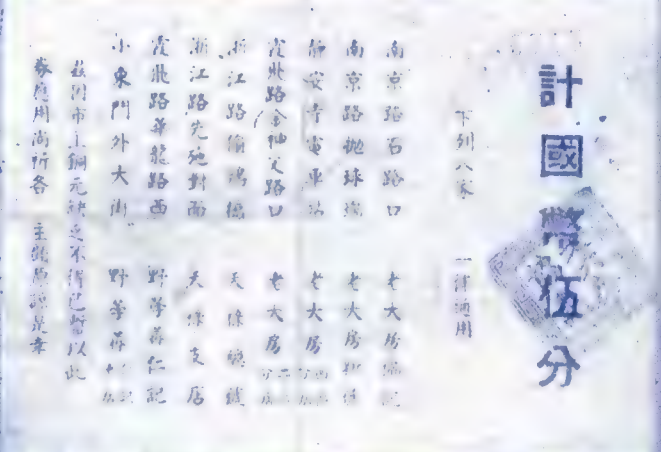 計國幣伍分
下列八家 一律通用
南京路石路口 老大房
南京路拋球場 老大房
靜安寺電車站 老大房
霞飛路金神父路口 老大房
浙江路 天祿
浙江路先施對面 天祿支店
霞飛路華龍路西 野荸薺仁記
小東門外大街 野荸薺
茲因市上銅元缺乏不得已暫以此
券應用尚祈各 主顧原諒是幸